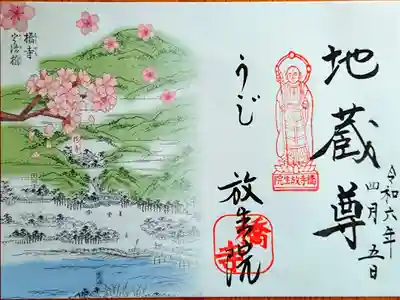 令和六年
四月五日
地蔵尊
橋寺放生院
うじ
放生院
橋寺
橋寺
宇治橋